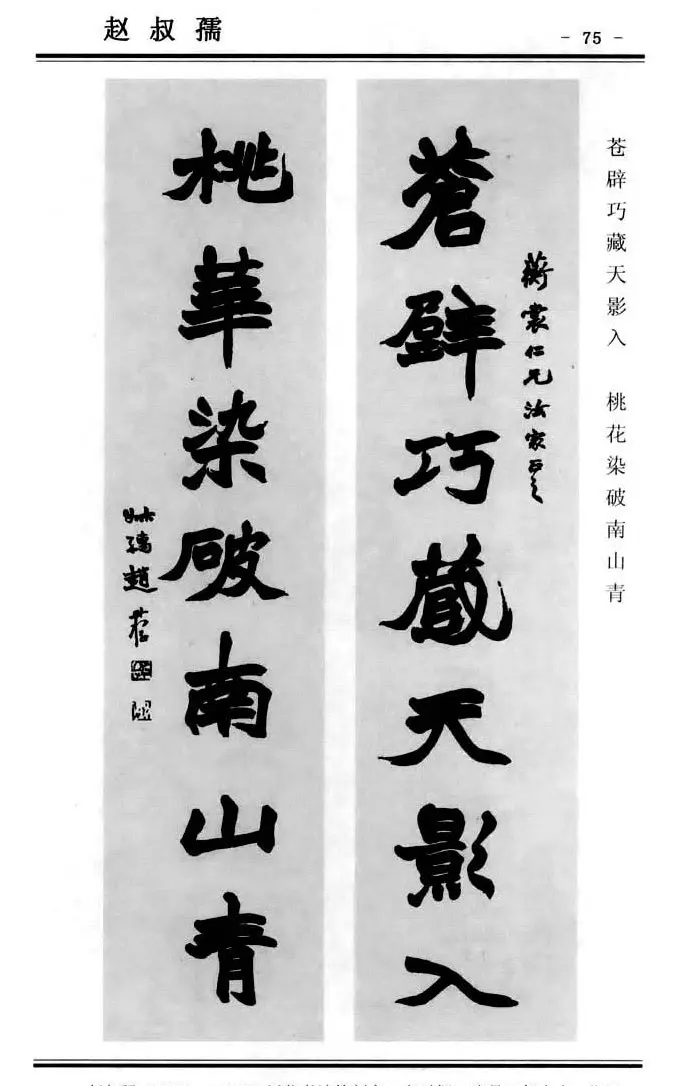 赵叔孺
- 75 -
苍辟巧藏天影入 桃花染破南山青
蒼壁巧藏天影入
仁兄法家正之
桃華染破南山青
叔孺趙